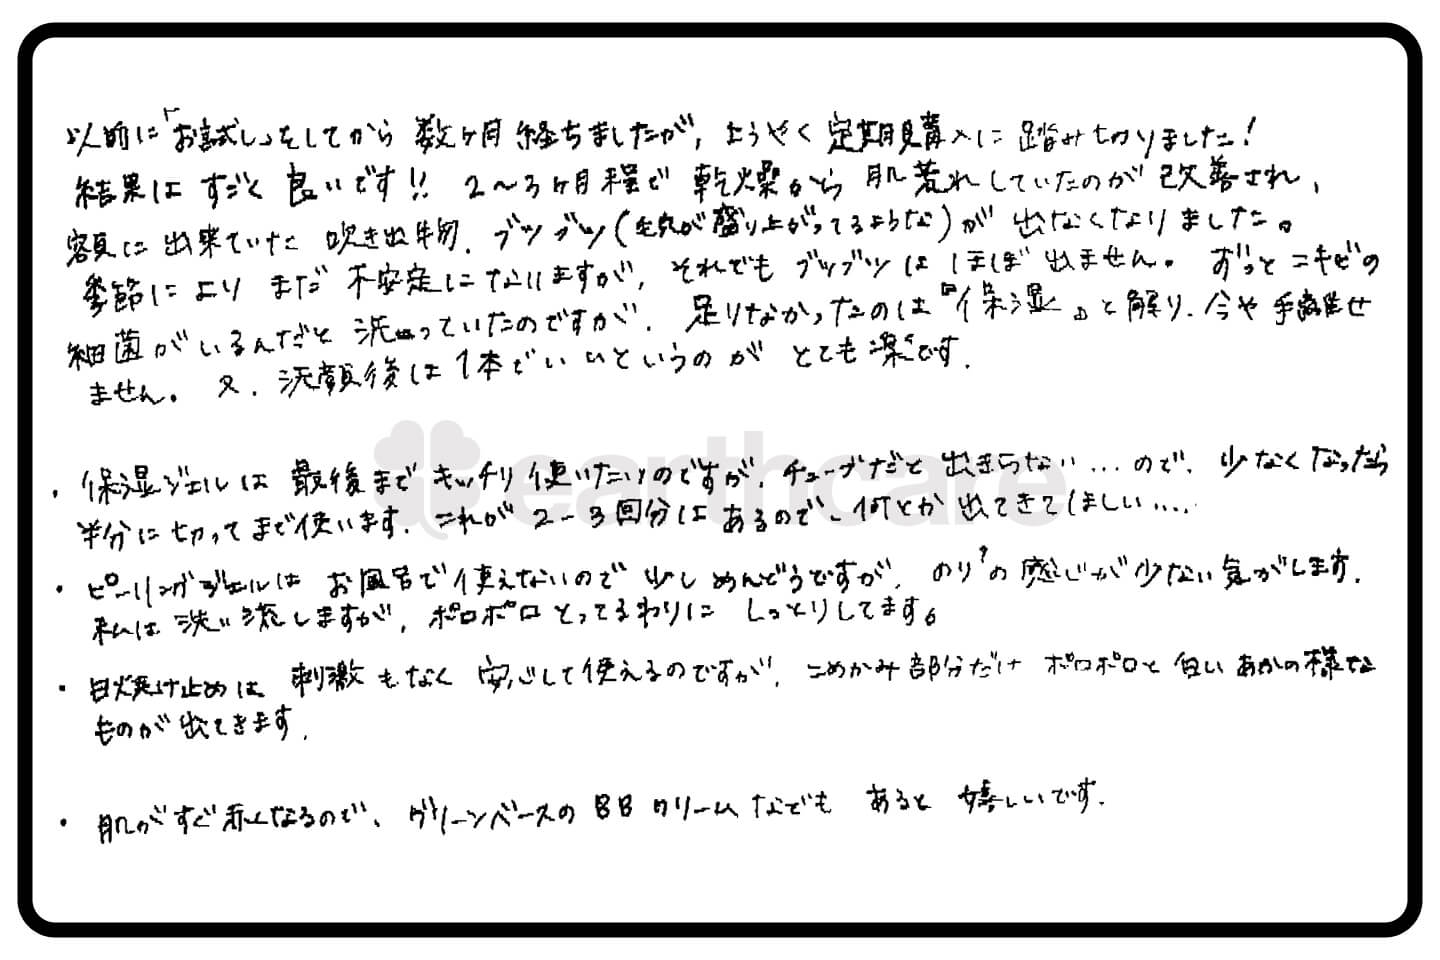 以前に「お試し」をしてから数ヶ月経ちましたが、ようやく定期購入に踏み切りました!
結果はすごく良いです!! 2〜3ヶ月程で乾燥から肌荒れしていたのが改善され、
額に出来ていた吹き出物、ブツブツ(毛穴が盛り上がってるような)が出なくなりました。
季節によりまだ不安定になりますが、それでもブツブツはほぼ出ません。ずっとニキビの
細菌がいるんだと洗っていたのですが、足りなかったのは『保湿』と解り、今や手離せ
ません。又、洗顔後は1本でいいというのがとても楽です。
earthcare
・保湿ジェルは最後までキッチリ使いたいのですが、チューブだと出きらない…ので、少なくなったら
半分に切ってまで使います。これが2-3回分はあるので、何とか出てきてほしい….
・ピーリングジェルはお風呂で使えないので少しめんどうですが、のり?の感じが少ない気がします。
私は洗い流しますが、ポロポロとってるわりにしっとりしてます。
・日焼け止めは刺激もなく安心して使えるのですが、こめかみ部分だけポロポロと白いあかの様な
ものが出てきます。
・肌がすぐ赤くなるので、グリーンベースのBBクリームなどでもあると嬉しいです。